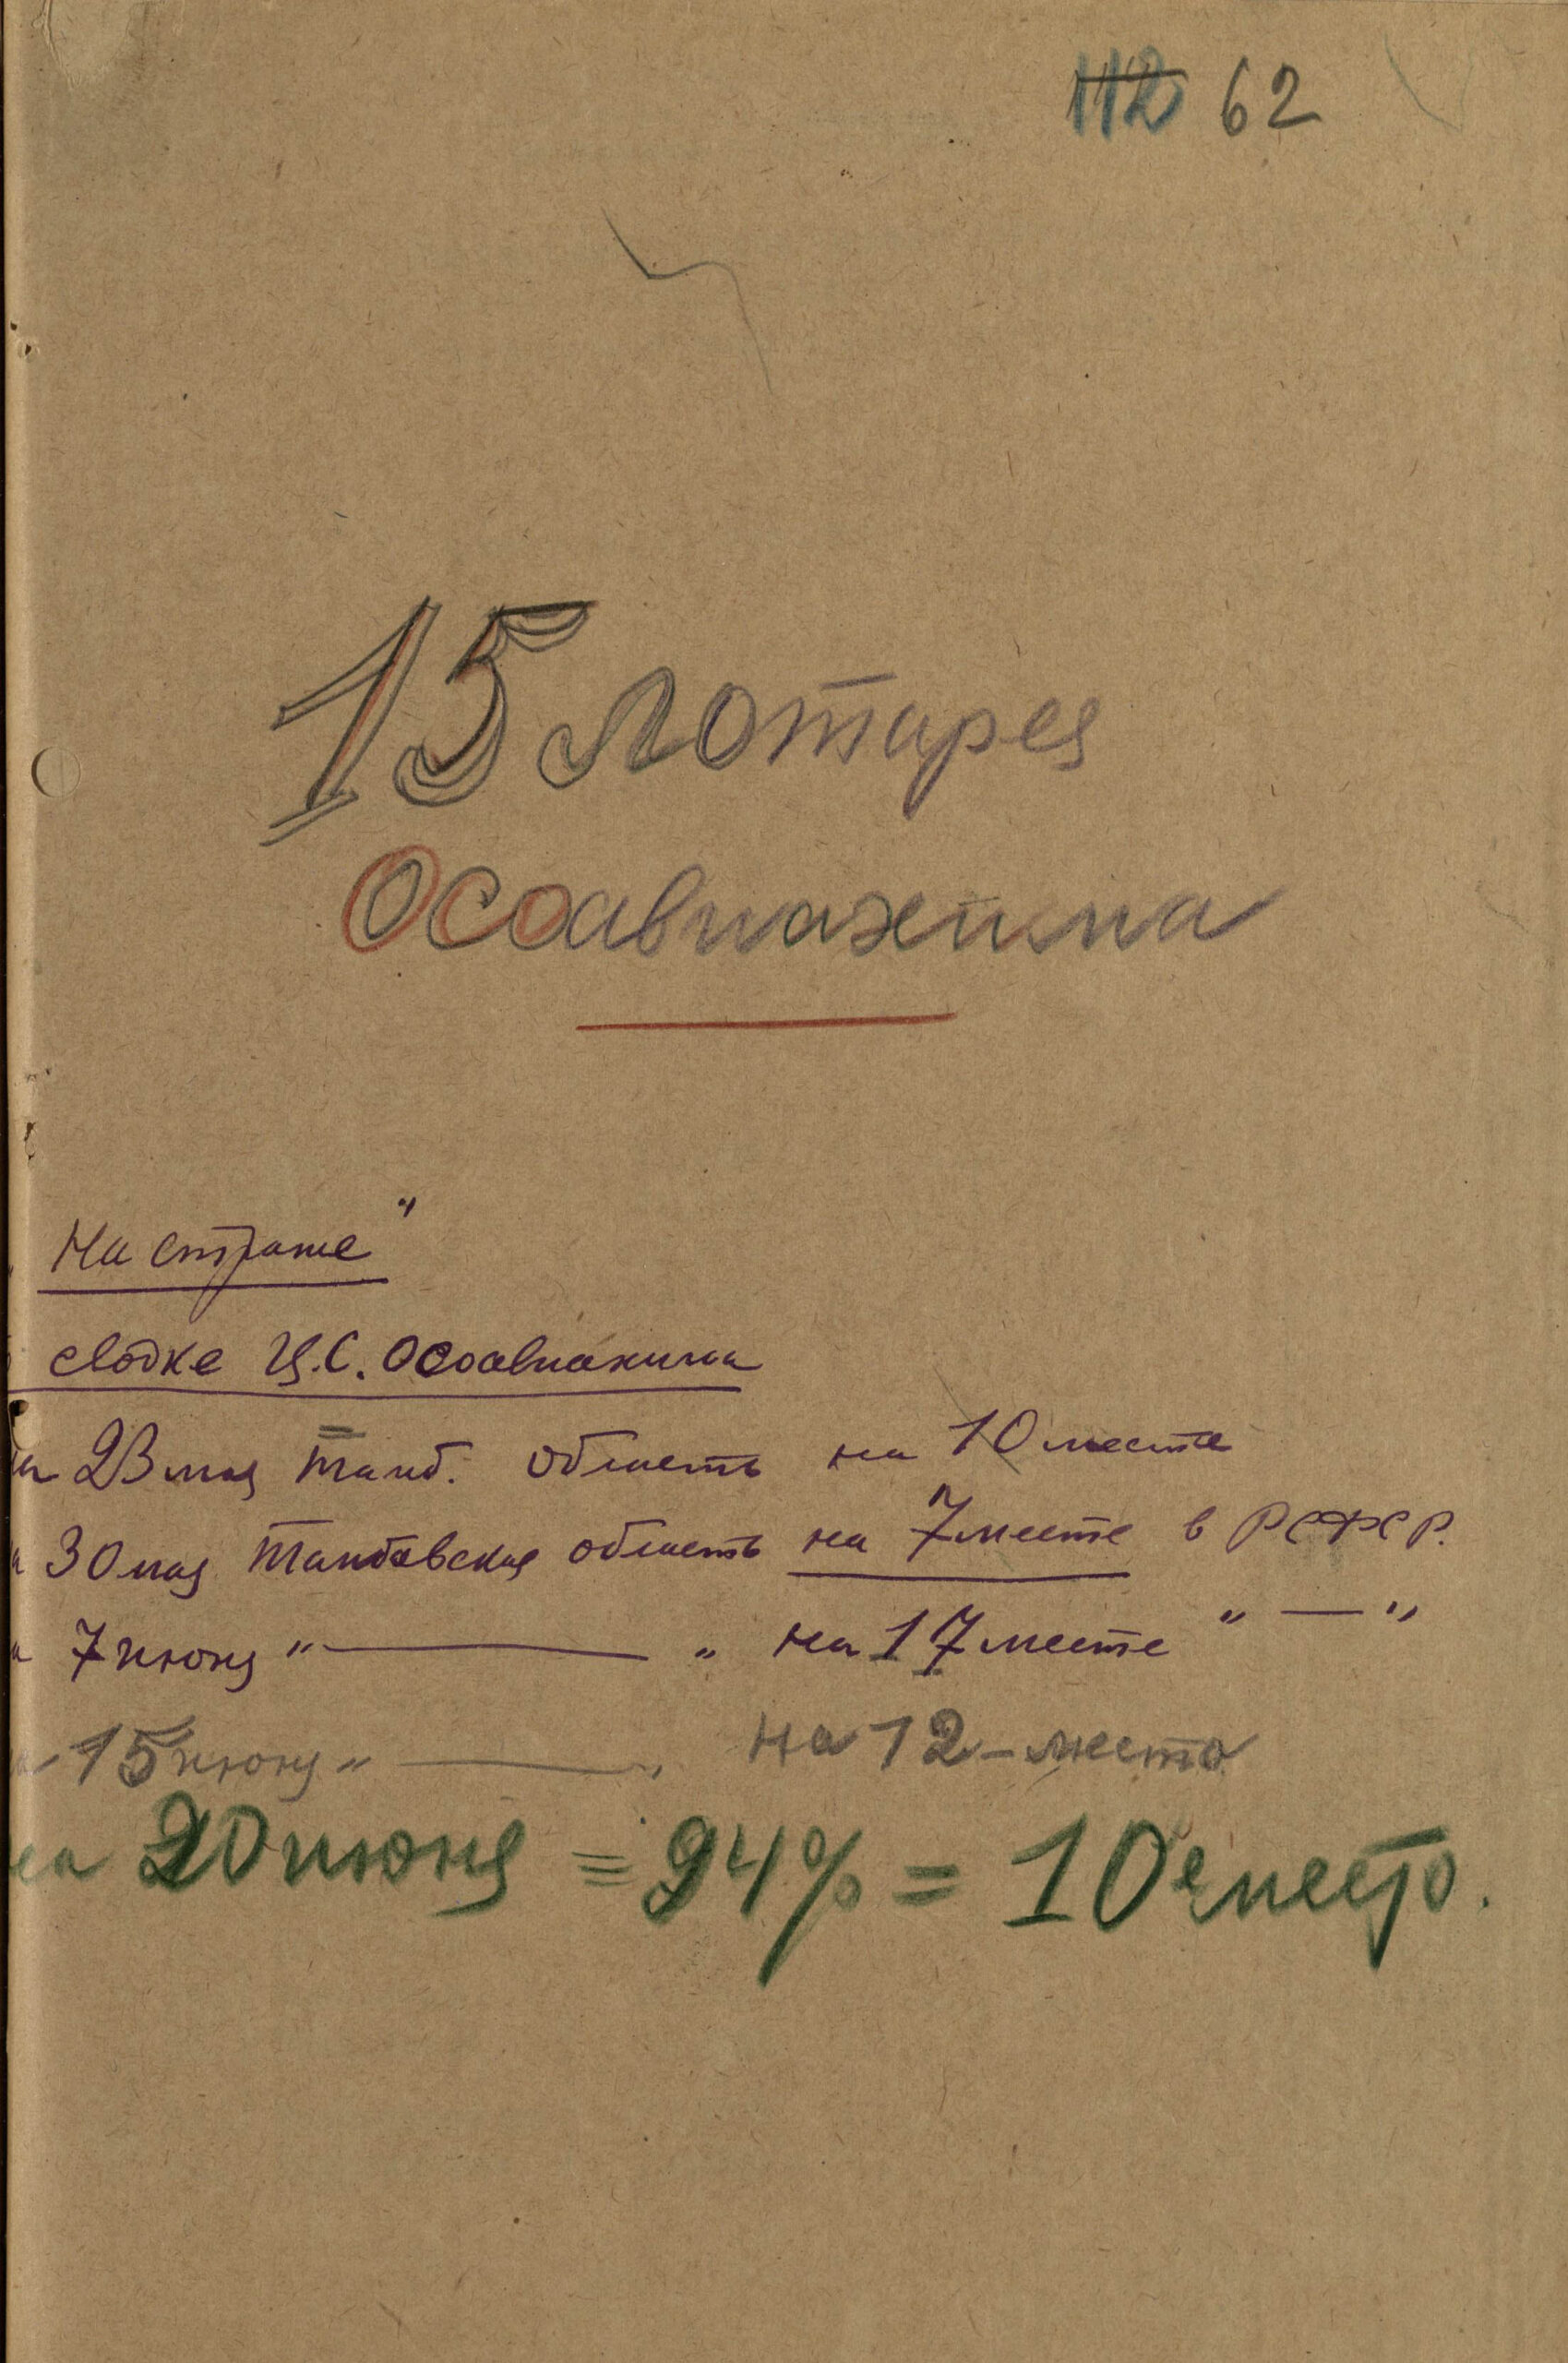 112 62
15 лотарея
Осоавиахима
На страже"
сводке Ц.С. Осоавиахима
на 23 мая Тамб. область на 10 месте
30 мая Тамбовская область на 7 месте в РСФСР.
7 июня "—" на 17 месте "—"
15 июня "—" на 12-место
на 20 июня = 94% = 10е место.